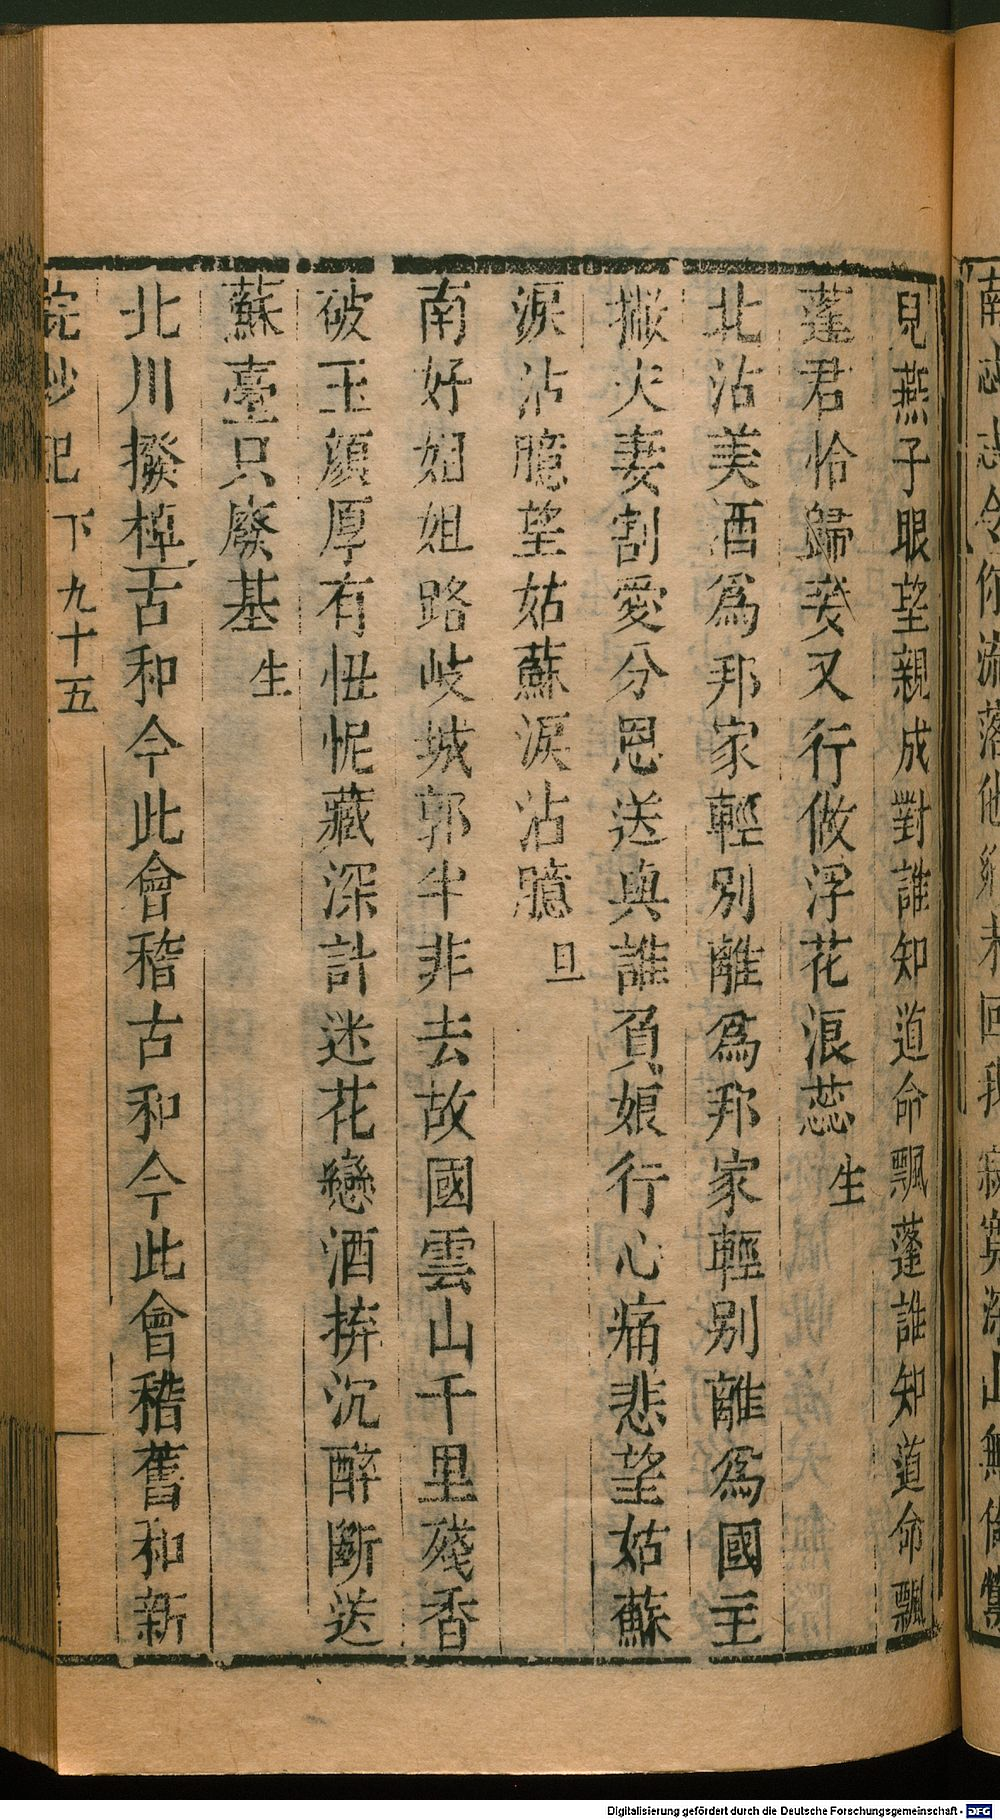 兒燕子眼望親成對誰知道命飄蓬誰知道命飄
蓬君恰歸來又行做浮花浪蕊生
北沾美酒為邦家輕別離為邦家輕別離為國主
撇夫妻割愛分恩送與誰負娘行心痛悲望姑蘇
淚沾臆望姑蘇淚沾臆旦
南好姐姐路岐城郭半非去故國雲山千里殘香
破玉顏厚有忸怩藏深計迷花戀酒拚沉醉斷送
蘇臺只廢基生
北川撥棹古和今此會稽古和今此會稽舊和新
紗記 下 九十五
Digitalisierung gefördert durch die Deutsche Forschungsgemeinschaft - DFG